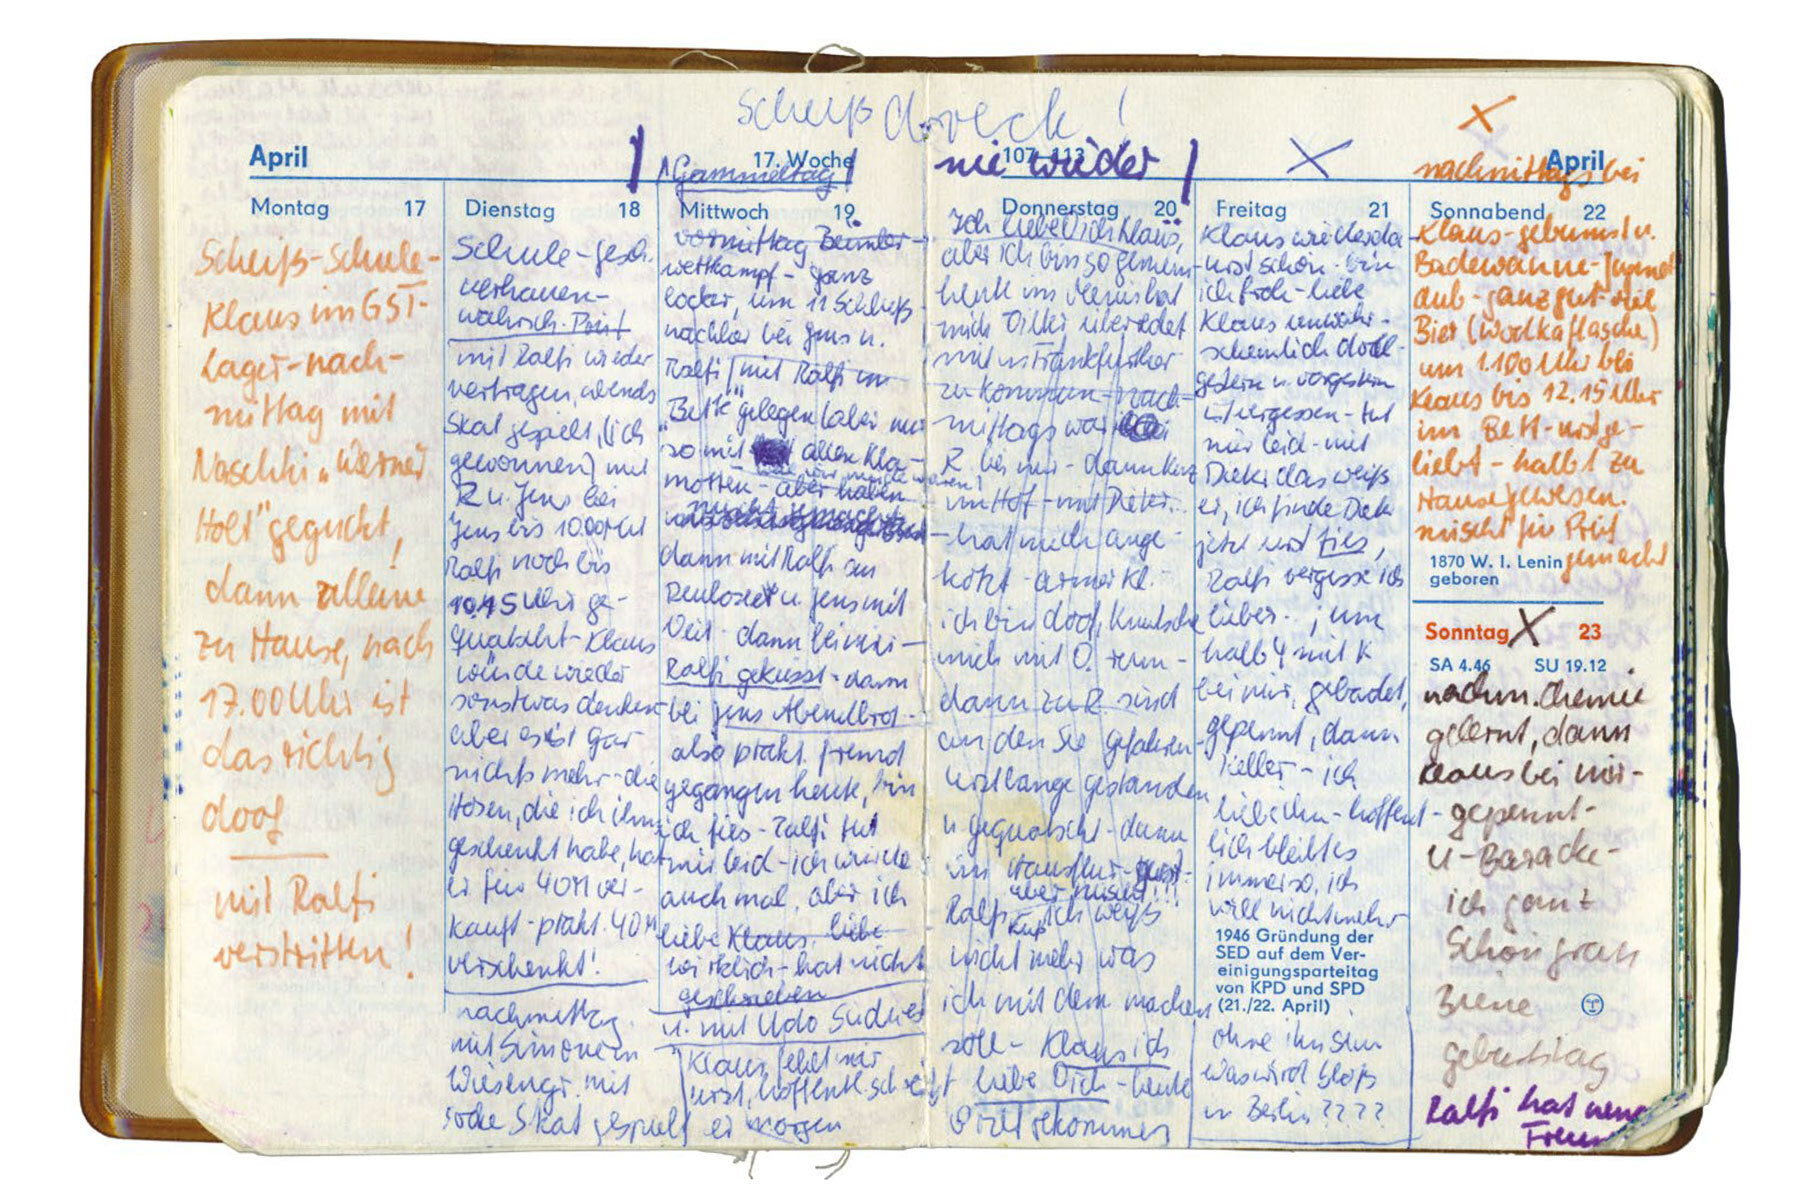 Scheißdreck!
April
17. Woche
Gammeltag
107-113
nie wieder
April
Montag 17
Scheiß-Schule-
Klaus im GST-
Lager-nach-
mittag mit
Naschki „Werner
Holt" geguckt,
dann alleine
zu Hause, nach
17.00 Uhr ist
das richtig
doof
mit Ralfi
verstritten!
Dienstag 18
Schule-gesch.
verhauen-
wahrsch.
mit Ralfi wieder
vertragen, abends
Skat gespielt, (ich
gewonnen) mit
R u. Jens bei
Jens bis 10.00 Uhr
Ralfi noch bis
10.45 Uhr ge-
quatscht-Klaus
würde wieder
sonstwas denken
aber es ist gar
nichts mehr-die
Hosen, die ich ihm
geschenkt habe, hat
er für 40M ver-
kauft-prakt. 40M
verschenkt!
nachmittag
mit Simone in
mit
Skat gespielt
Mittwoch 19.
vormittag
wettkampf-ganz
locker, um 11 Schluß-
nachher bei Jens u.
Ralfi mit Ralfi im
"Bett" gelegen (aber nur
so mit allen Kla-
motten-aber haben
dann mit Ralfi zu
u. Jens mit
Veit-dann bei mir-
Ralfi geküsst-dann
bei Jens Abendbrot-
also prakt. fremd
gegangen heute, bin
ich fies-Ralfi tut
mir leid-ich würde
auch mal, aber ich
liebe Klaus, liebe
wirklich-hat nicht
geschrieben
u. mit Udo
Klaus fehlt mir
urst, hoffentl. schreibt
er morgen
Donnerstag 20
Ich liebe Dich Klaus,
aber ich bin so gemein-
heute im hat
mich überredet
mit ins Frankfurther
zu kommen-nach-
mittags war
R. bei mir-dann kurz
im Hof-mit Dieter-
hat mich ange-
kotzt-armer Kl.-
ich bin doof, knutsche
mich mit D. rum-
dann zu R. sind
an den See gefahren-
urst lange gestanden
u gequatscht-dann
im Hausflur-
aber nischt!!!
Ralfi Kuß, ich weiß
nicht mehr was
ich mit dem machen
soll-Klaus ich
liebe Dich-heute
gekommen
Freitag 21
Klaus wieder da-
urst schön-bin
ich froh-liebe
Klaus unwahr-
scheinlich doll-
gestern u. vorgestern
ist vergessen-tut
mir leid-mit
Dieter das weiß
er, ich finde Diet.
jetzt urst fies,
Ralfi vergesse ich
lieber..; um
halb 4 mit K
bei mir, gebadet,
gepennt, dann
Keller-ich
liebe ihn-hoffent-
lich bleibt es
immer so, ich
will nicht mehr
1946 Gründung der
SED auf dem Ver-
einigungsparteitag
von KPD und SPD
(21./22. April)
ohne ihn sein
was wird bloß
in Berlin????
nachmittags bei
Sonnabend 22
Klaus-gebumst u.
Badewanne-Jugend-
club-ganz gut-viel
Bier (Wodkaflasche)
um 1.100 Uhr bei
Klaus bis 12.15 Uhr
im Bett-urst ge-
liebt-halb 1 zu
Hause gewesen.
nischt für Prüf
gemacht
1870 W. I. Lenin
geboren
Sonntag 23
SA 4.46 SU 19.12
nachm. Chemie
gelernt, dann
Klaus bei mir-
gepennt-
U-Baracke-
ich ganz
schön
Biene
geburtstag
Ralfi hat neue